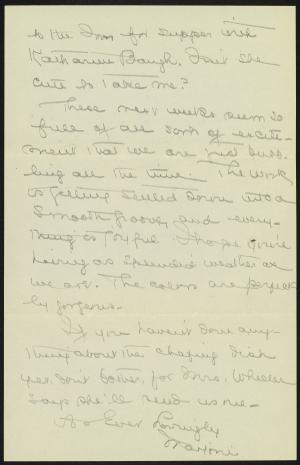 to the Inn for supper with
Katharine Baugh. Isn't she
cute to take me?
These next weeks seem so
full of all sorts of excite-
ment that we are just buzz-
ing all the time. The work
is getting settled down into a
smooth groove, and every-
thing is joyful. I hope you're
having as splendid weather as
we are. The colors are perfect-
ly gorgeous.
If you haven't done any-
thing about the chafing dish
yet don't bother, for Mrs. Wheeler
says she'll lend us one -
As Ever Lovingly